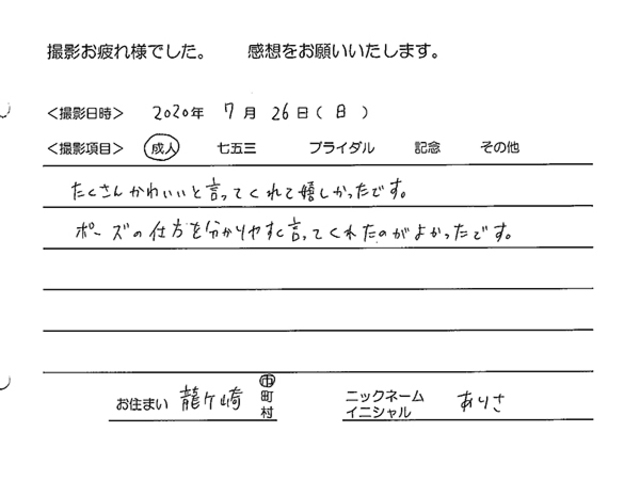 撮影お疲れ様でした。 感想をお願いいたします。
<撮影日時> 2020年 7月 26日(日)
<撮影項目> 成人 七五三 ブライダル 記念 その他
たくさんかわいいと言ってくれて嬉しかったです。
ポーズの仕方を分かりやすく言ってくれたのがよかったです。
お住まい 龍ケ崎 市町村
ニックネーム イニシャル ありさ